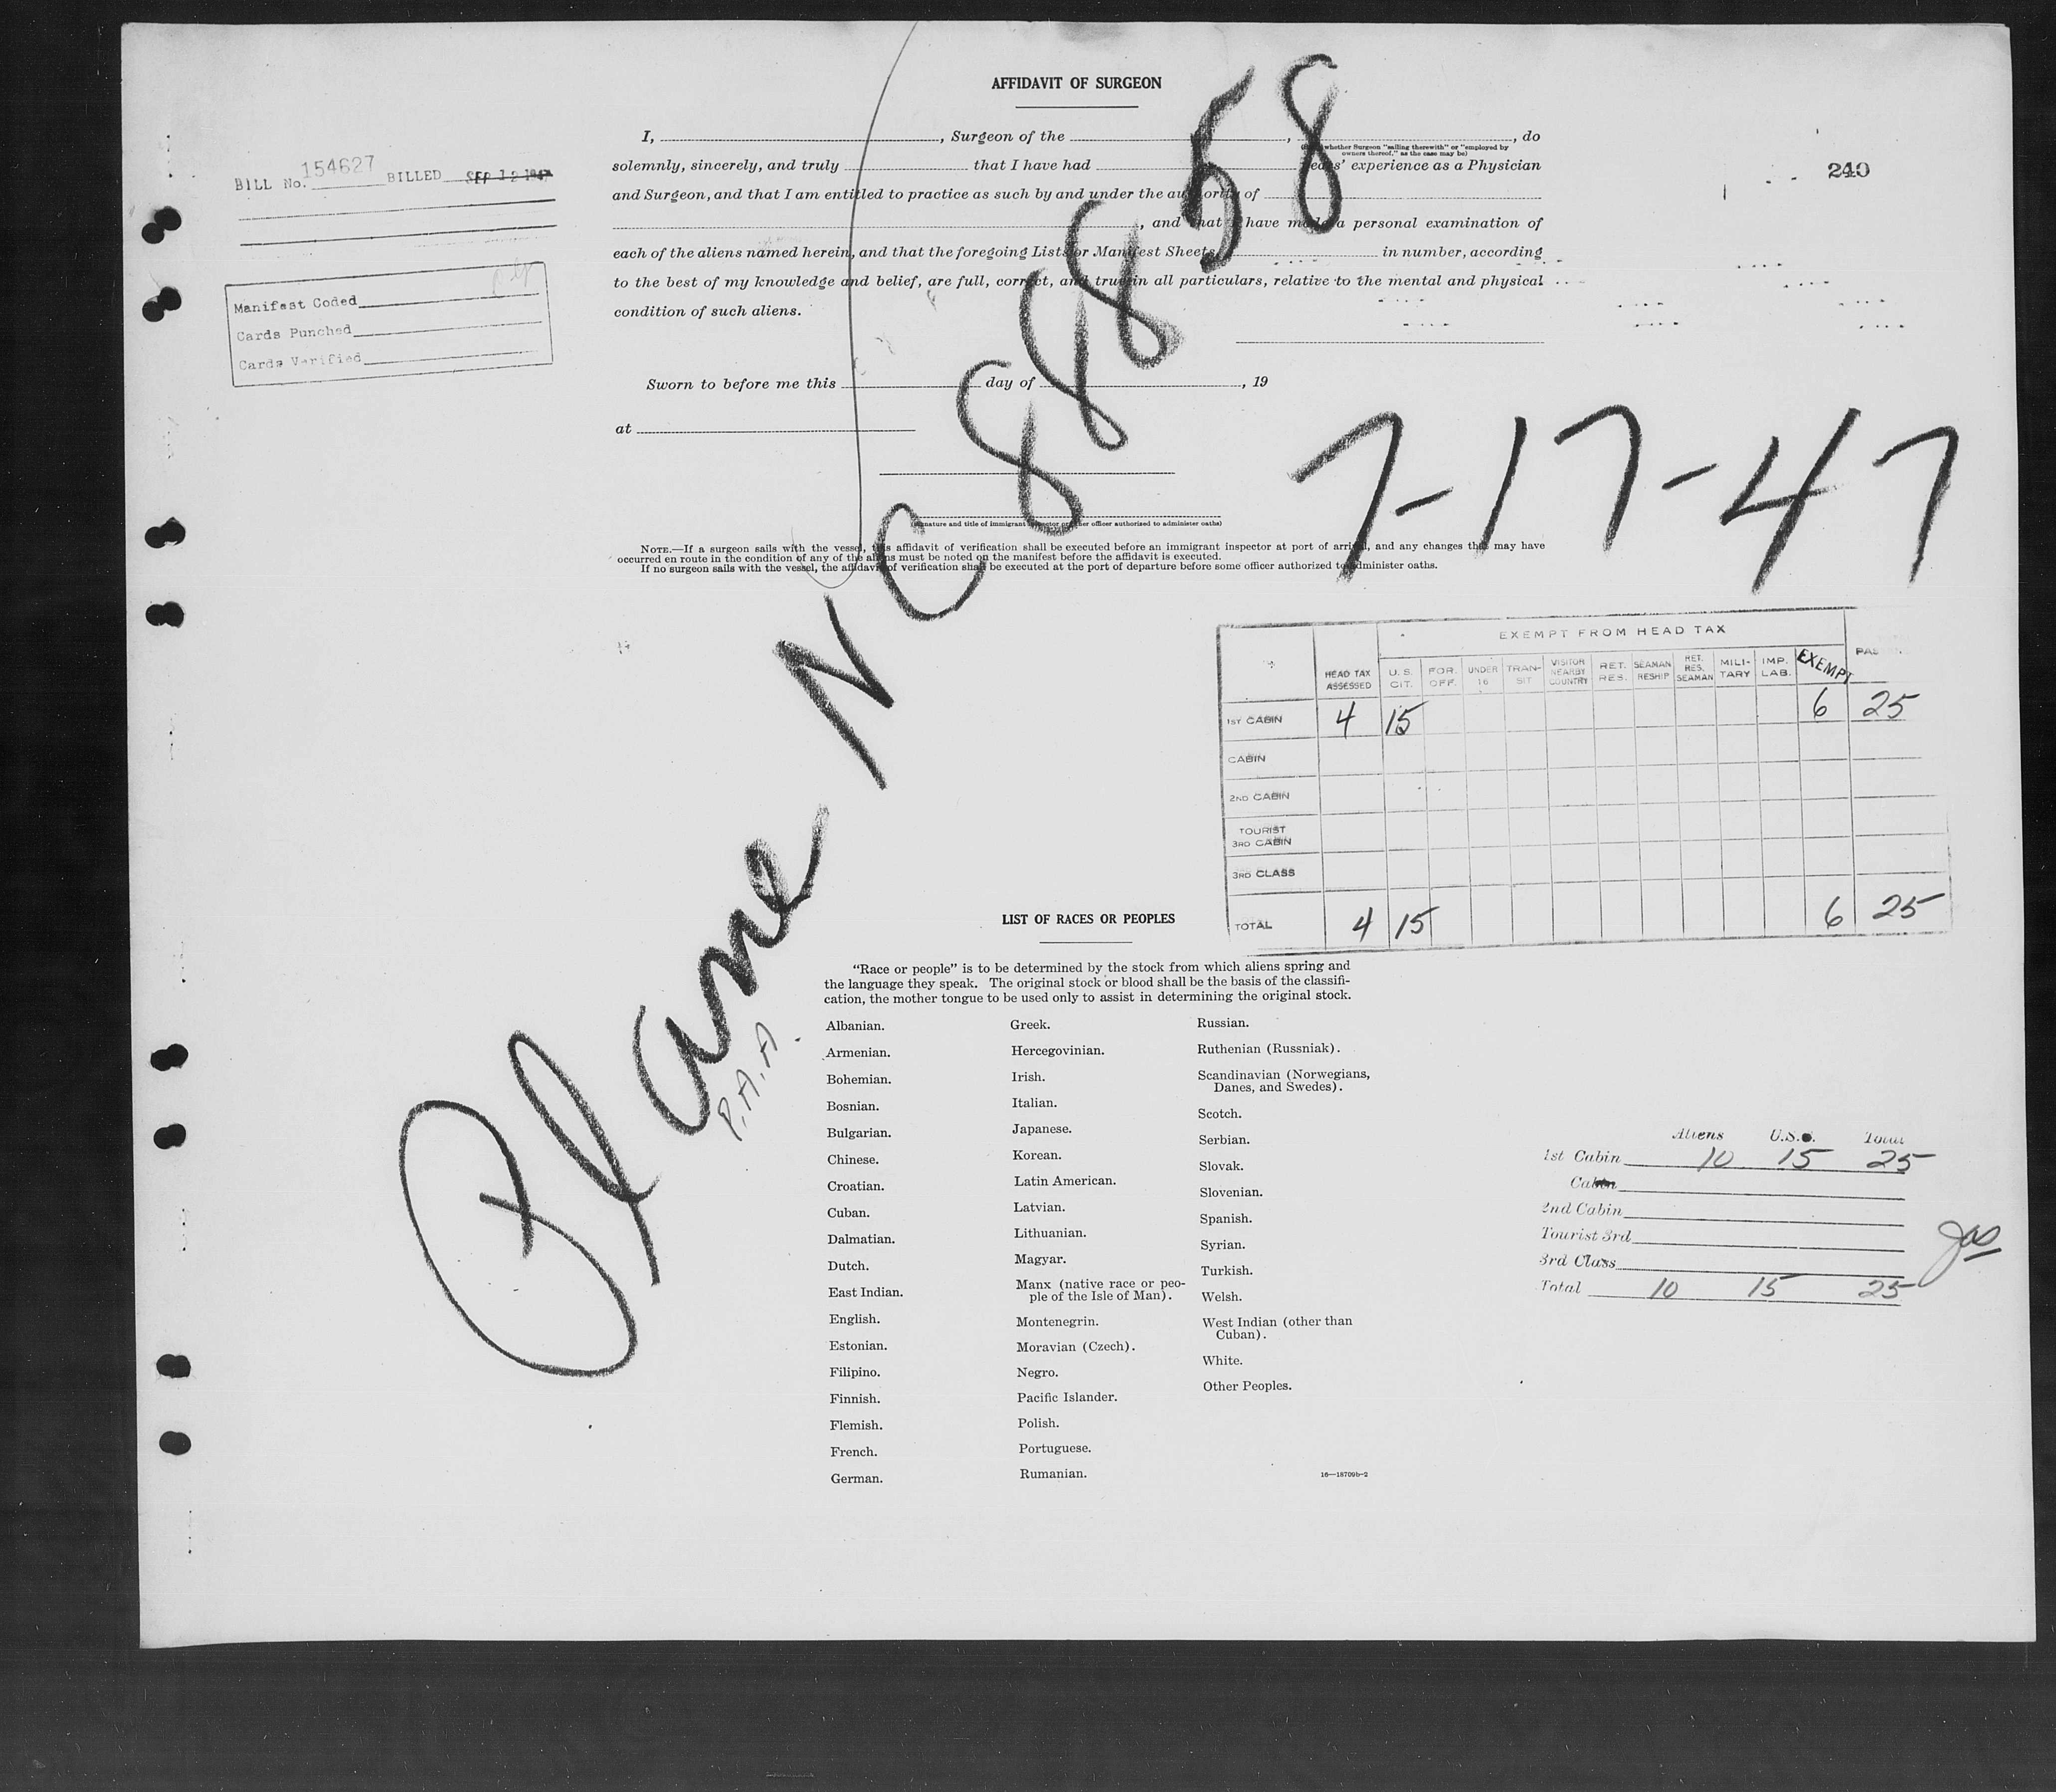 AFFIDAVIT OF SURGEON
I, , Surgeon of the , , do
(State whether Surgeon "sailing therewith" or "employed by owners thereof," as the case may be)
solemnly, sincerely, and truly that I have had years' experience as a Physician
and Surgeon, and that I am entitled to practice as such by and under the authority of
, and that I have made a personal examination of
each of the aliens named herein, and that the foregoing Lists or Manifest Sheets, in number, according
to the best of my knowledge and belief, are full, correct, and true in all particulars, relative to the mental and physical
condition of such aliens.
Sworn to before me this day of , 19
at
(Signature and title of immigrant inspector or other officer authorized to administer oaths)
NOTE.—If a surgeon sails with the vessel, this affidavit of verification shall be executed before an immigrant inspector at port of arrival, and any changes that may have
occurred en route in the condition of any of the aliens must be noted on the manifest before the affidavit is executed.
If no surgeon sails with the vessel, the affidavit of verification shall be executed at the port of departure before some officer authorized to administer oaths.
BILL No. 154627 BILLED SEP 12 1947
Manifest Coded
Cards Punched
Cards Verified
240
Plane NC 88858
P.A.A.
7-17-47
EXEMPT FROM HEAD TAX
HEAD TAX ASSESSED U. S. CIT. FOR. OFF. UNDER 16 TRAN-SIT VISITOR NEARBY COUNTRY RET. RES. SEAMAN RESHIP RET. RES. SEAMAN MILI-TARY IMP. LAB. EXEMPT PAS
1ST CABIN 4 15 6 25
CABIN
2ND CABIN
TOURIST
3RD CABIN
3RD CLASS
TOTAL 4 15 6 25
LIST OF RACES OR PEOPLES
"Race or people" is to be determined by the stock from which aliens spring and
the language they speak. The original stock or blood shall be the basis of the classifi-
cation, the mother tongue to be used only to assist in determining the original stock.
Albanian.
Armenian.
Bohemian.
Bosnian.
Bulgarian.
Chinese.
Croatian.
Cuban.
Dalmatian.
Dutch.
East Indian.
English.
Estonian.
Filipino.
Finnish.
Flemish.
French.
German.
Greek.
Hercegovinian.
Irish.
Italian.
Japanese.
Korean.
Latin American.
Latvian.
Lithuanian.
Magyar.
Manx (native race or peo-
ple of the Isle of Man).
Montenegrin.
Moravian (Czech).
Negro.
Pacific Islander.
Polish.
Portuguese.
Rumanian.
Russian.
Ruthenian (Russniak).
Scandinavian (Norwegians,
Danes, and Swedes).
Scotch.
Serbian.
Slovak.
Slovenian.
Spanish.
Syrian.
Turkish.
Welsh.
West Indian (other than
Cuban).
White.
Other Peoples.
16—18709b-2
Aliens U.S. Total
1st Cabin 10 15 25
Cabin
2nd Cabin
Tourist 3rd
3rd Class
Total 10 15 25